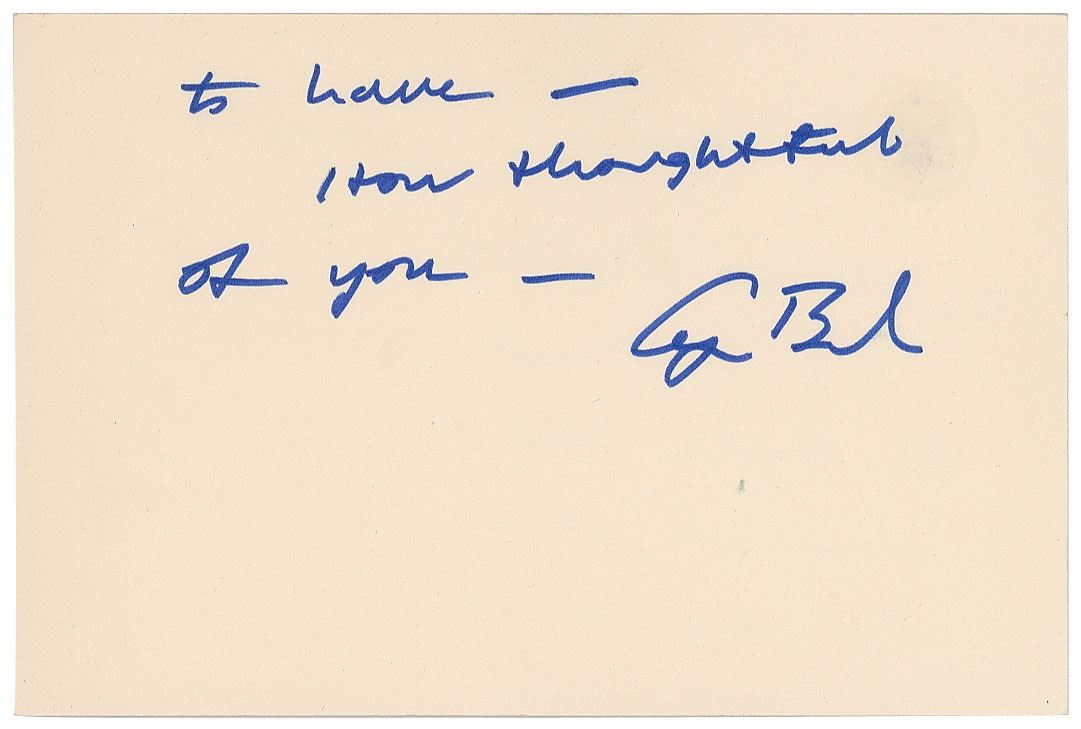 to have —
How thoughtful
of you —
G Bush